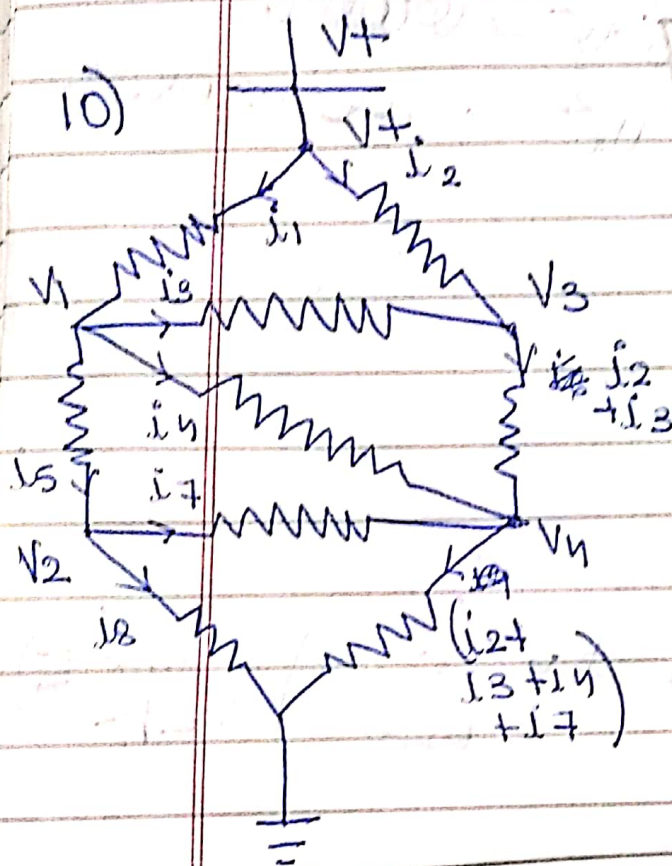 V+
10)
V+
i2
i1
V1
i3
V3
i2
+i3
i4
i5
i7
V4
V2
i8
(i2+
i3+i4
+i7)